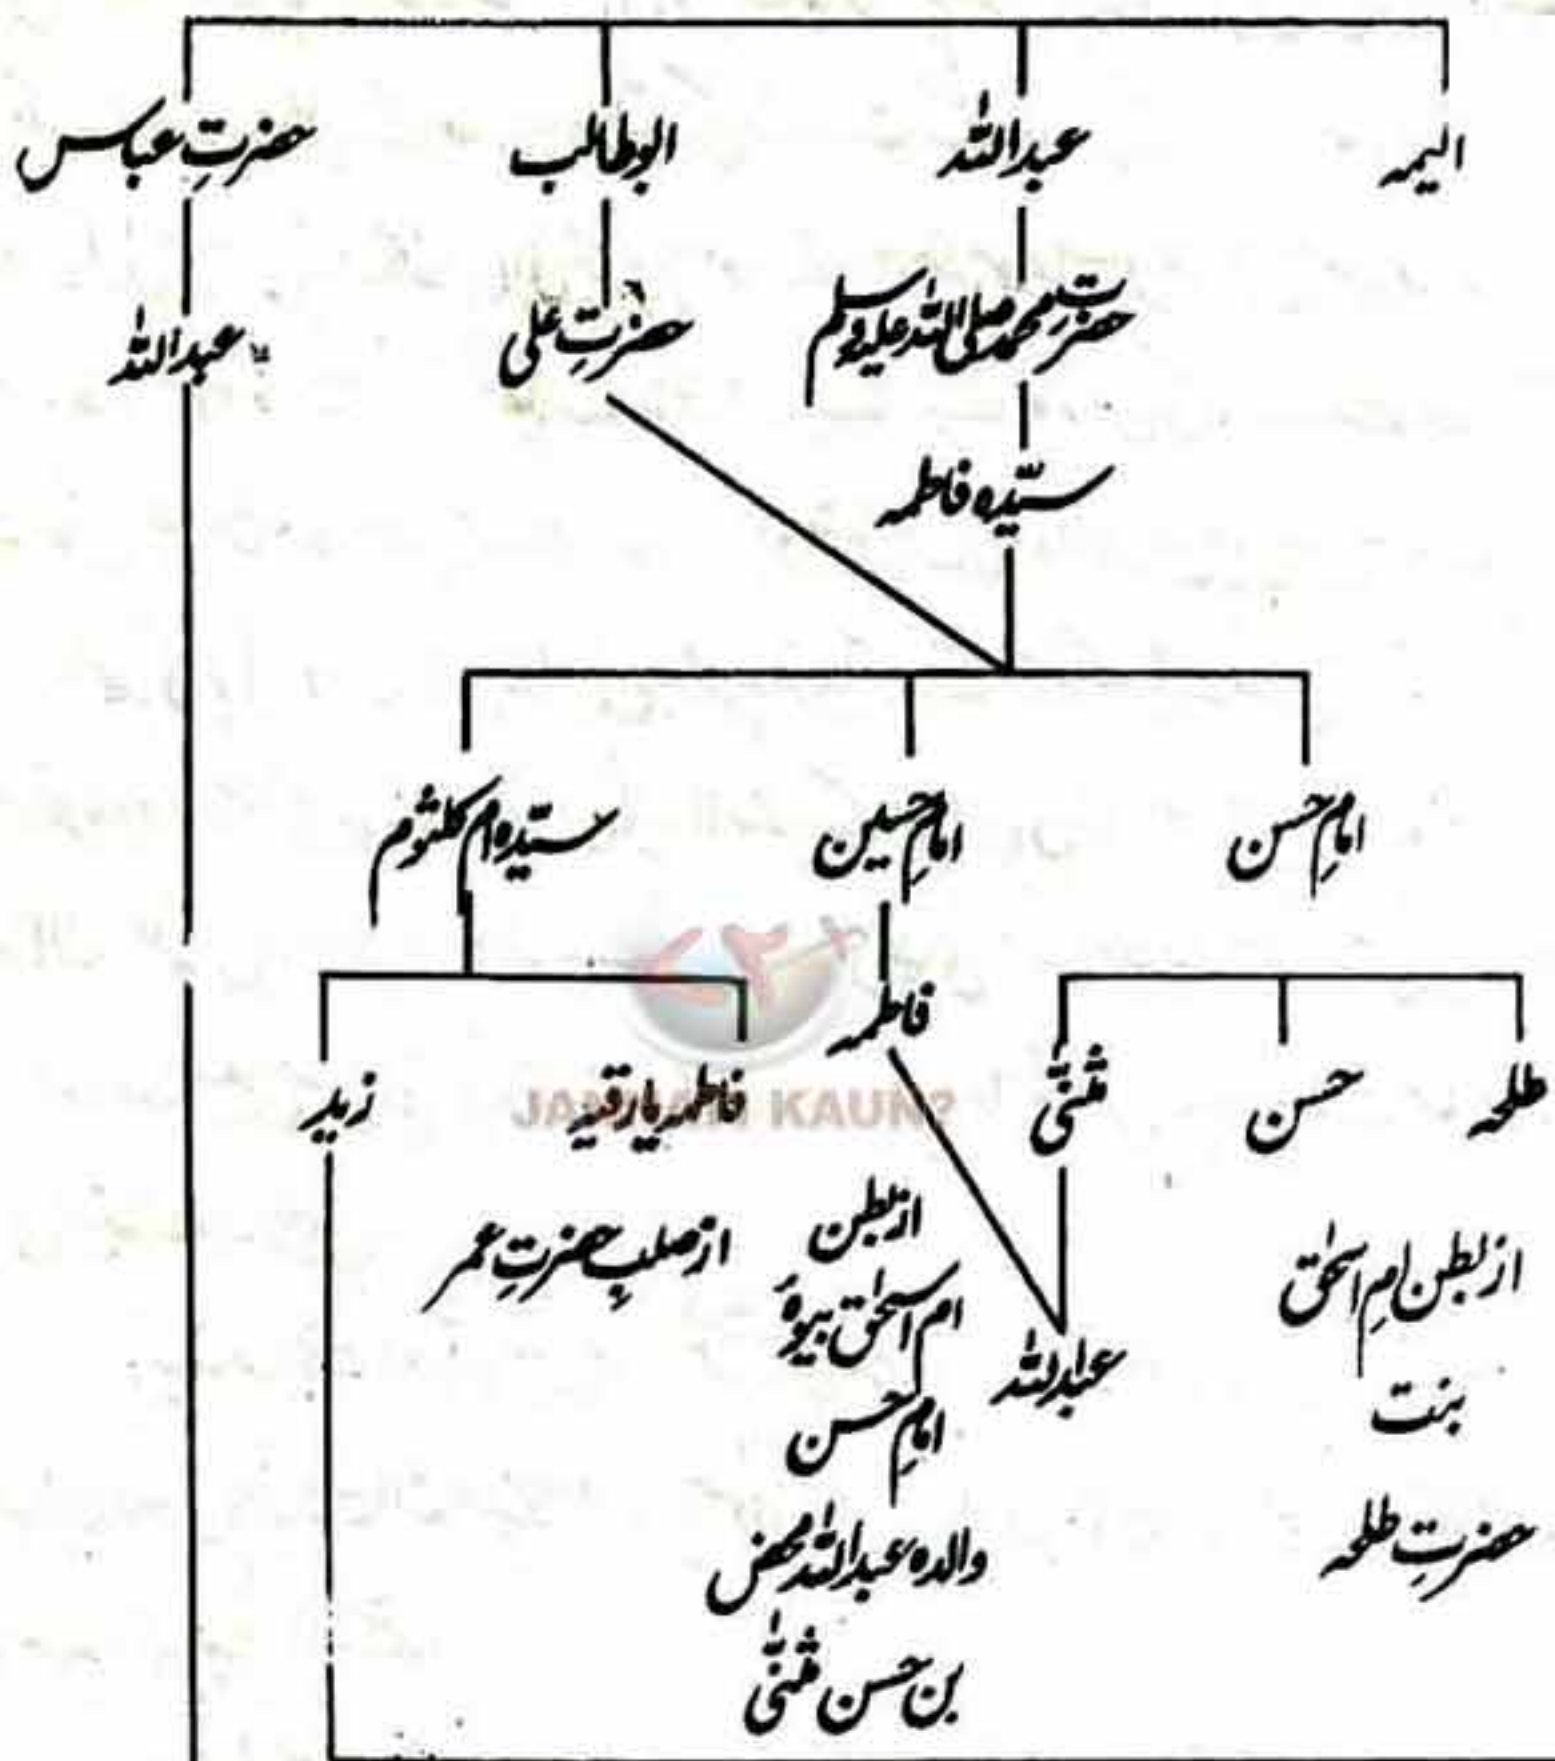 الیمہ
عبداللہ
ابوطالب
حضرتِ عباس
حضرت محمد صلی اللہ علیہ وسلم
حضرتِ علی
عبداللہ
سیّدہ فاطمہ
امامِ حسن
امامِ حسین
سیّدہ ام کلثوم
فاطمہ
طلحہ
حسن
مثنّٰی
فاطمہ یا رقیہ
زید
JANNATI KAUN?
از بطن امِ اسحٰق
بنت
حضرتِ طلحہ
عبداللہ
از بطن
ام اسحٰق بیوۂ
امامِ حسن
والدہ عبداللہ محض
بن حسن مثنّٰی
از صلبِ حضرتِ عمر